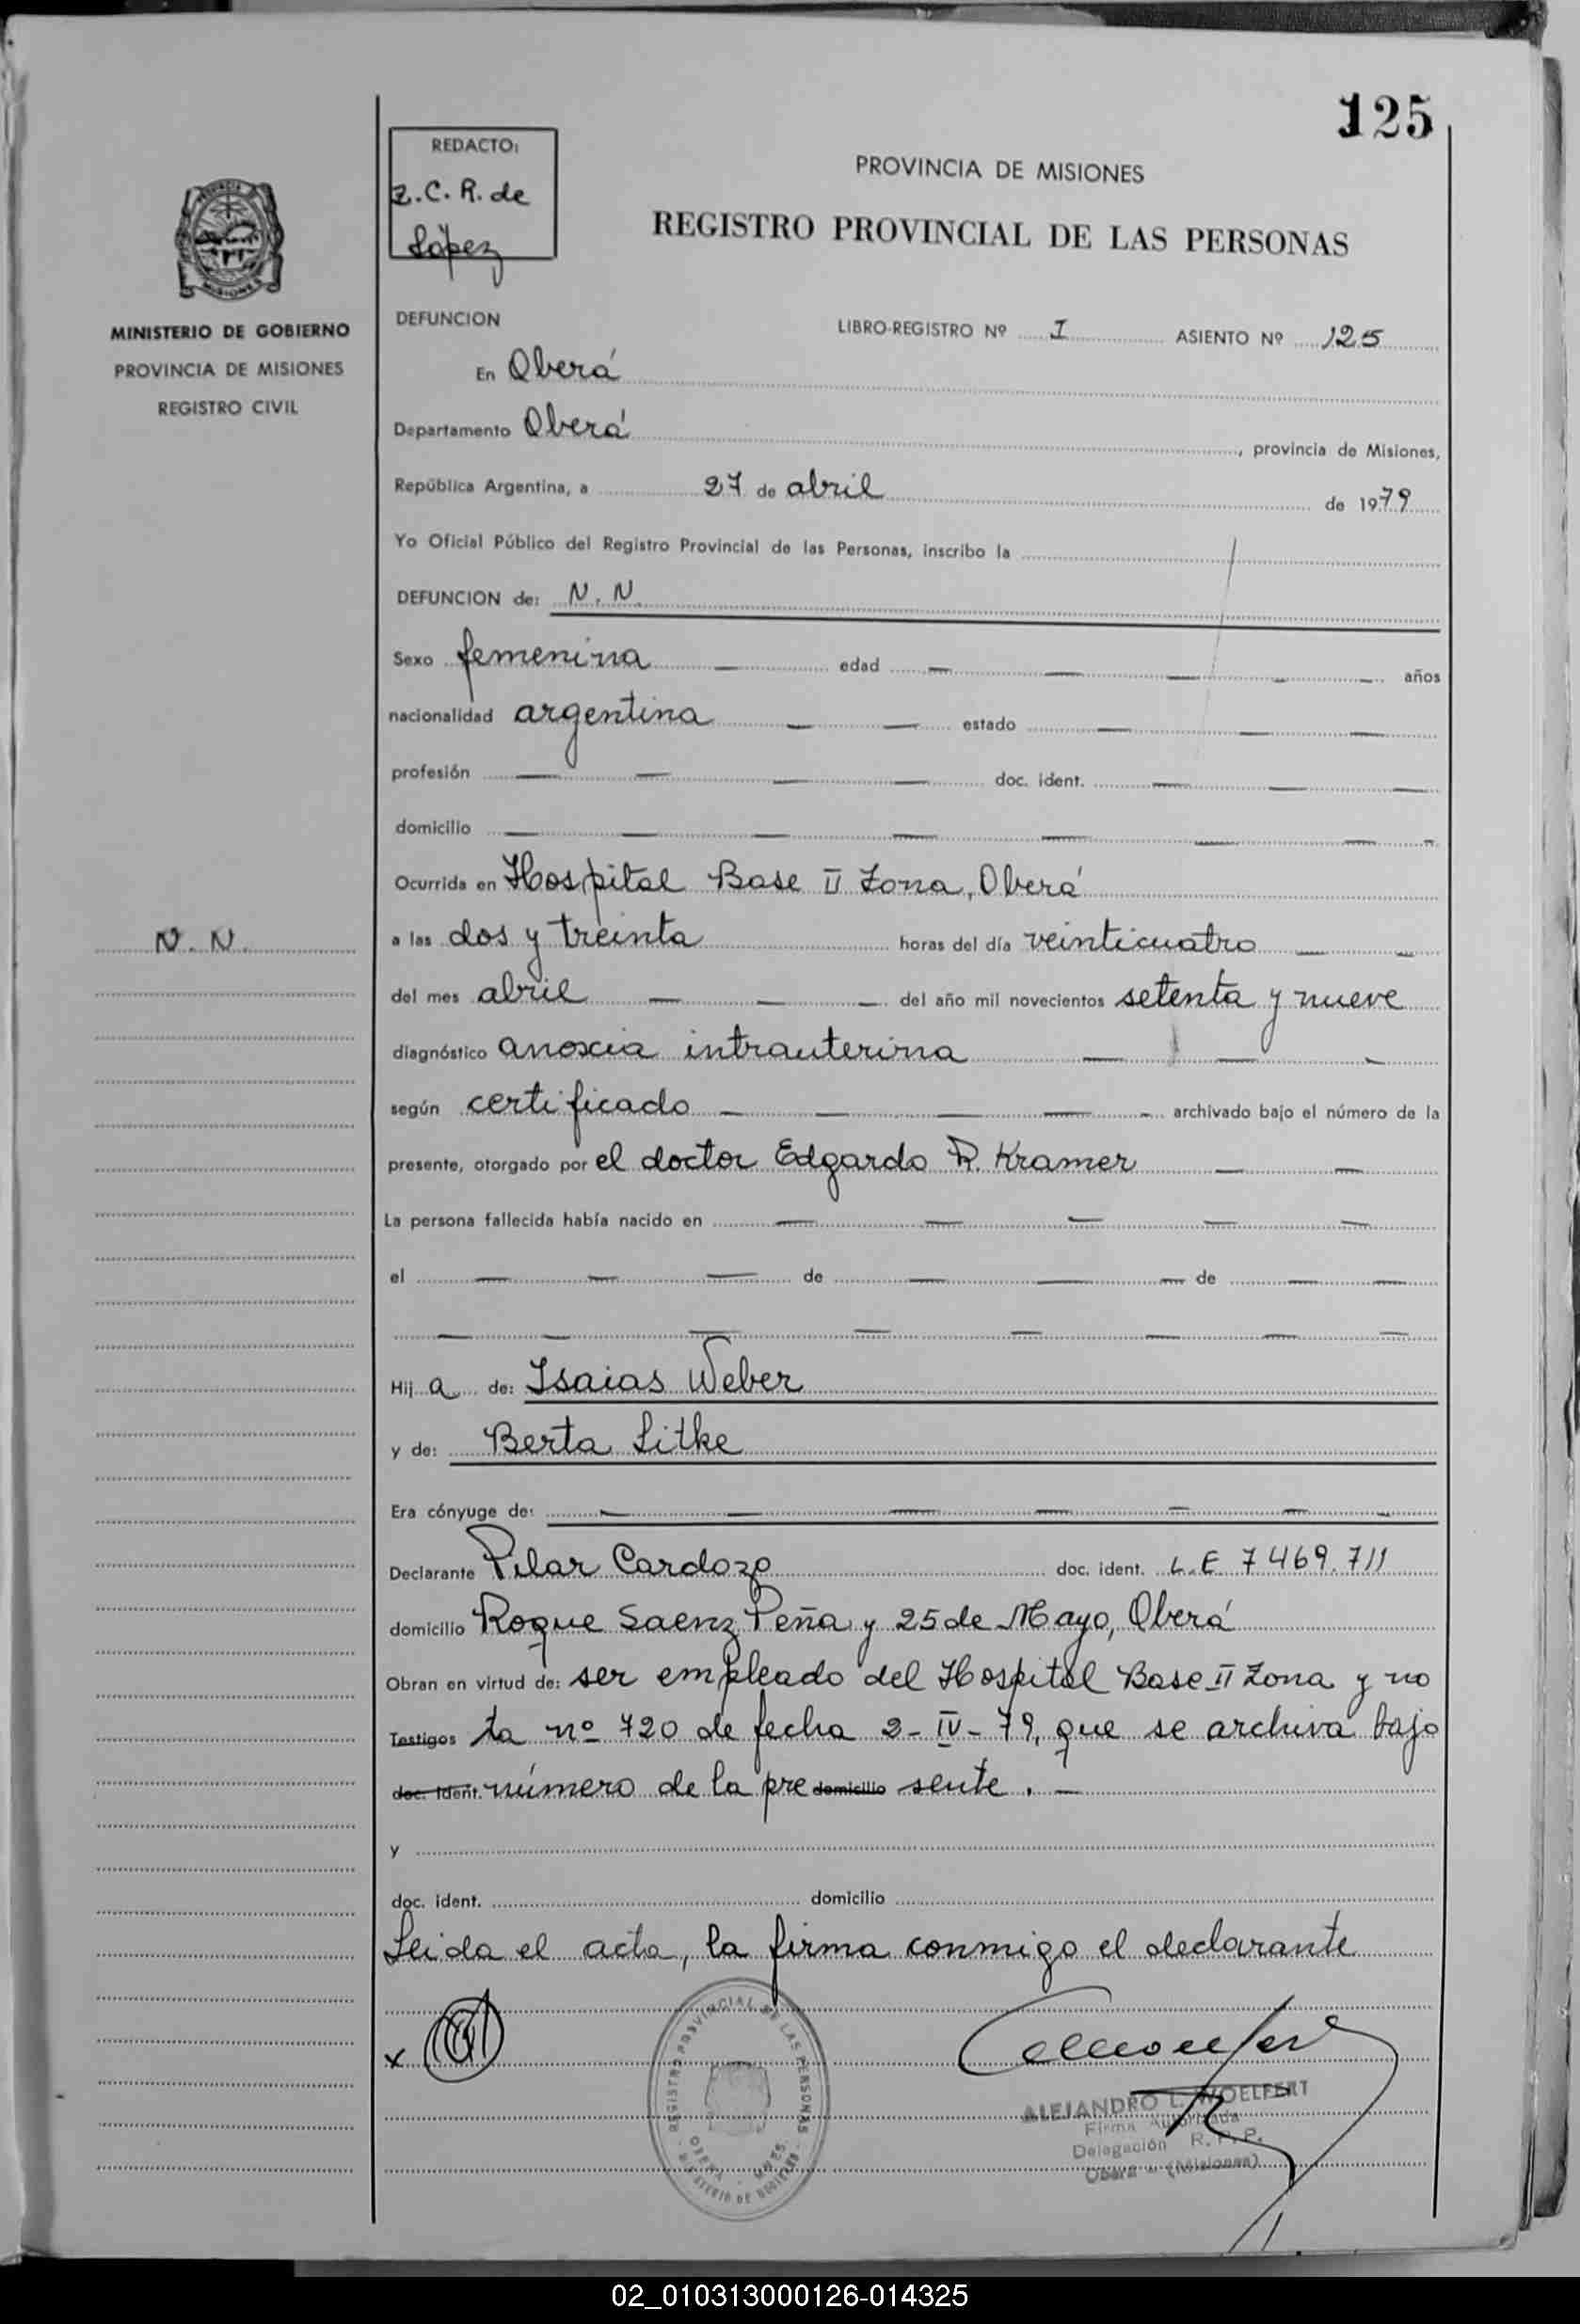 125
REDACTO:
Z. C. R. de
López
PROVINCIA DE MISIONES
REGISTRO PROVINCIAL DE LAS PERSONAS
MISIONES
MINISTERIO DE GOBIERNO
PROVINCIA DE MISIONES
REGISTRO CIVIL
DEFUNCION
LIBRO-REGISTRO Nº I ASIENTO Nº 125
En Oberá
Departamento Oberá, provincia de Misiones,
República Argentina, a 27 de abril de 1979
Yo Oficial Público del Registro Provincial de las Personas, inscribo la
DEFUNCION de: N. N.
Sexo femenina — edad — — — — — años
nacionalidad argentina — — estado — — —
profesión — — — — doc. ident. — — —
domicilio — — — — — — — —
Ocurrida en Hospital Base II Zona, Oberá
N. N.
a las dos y treinta horas del día veinticuatro — —
del mes abril — — — del año mil novecientos setenta y nueve
diagnóstico anoxia intrauterina — — —
según certificado — — — — — archivado bajo el número de la
presente, otorgado por el doctor Edgardo R. Kramer — —
La persona fallecida había nacido en — — — — —
el — — — de — — — de — —
— — — — — — — —
Hija de: Isaias Weber
y de: Berta Litke
Era cónyuge de: — — — — — — —
Declarante Pilar Cardozo doc. ident. L.E 7469.711
domicilio Roque Saenz Peña y 25 de Mayo, Oberá
Obran en virtud de: ser empleado del Hospital Base II Zona y no
Testigos ta nº 720 de fecha 2-IV-79, que se archiva bajo
doc. ident. número de la pre domicilio sente. —
y
doc. ident. domicilio
Leida el acta, la firma conmigo el declarante
x
REGISTRO PROVINCIAL DE LAS PERSONAS
OBERA - MNES.
MINISTERIO DE GOBIERNO
ALEJANDRO L. WOELFERT
Firma Autorizada
Delegación R. P. P.
Oberá - (Misiones)
02_010313000126-014325